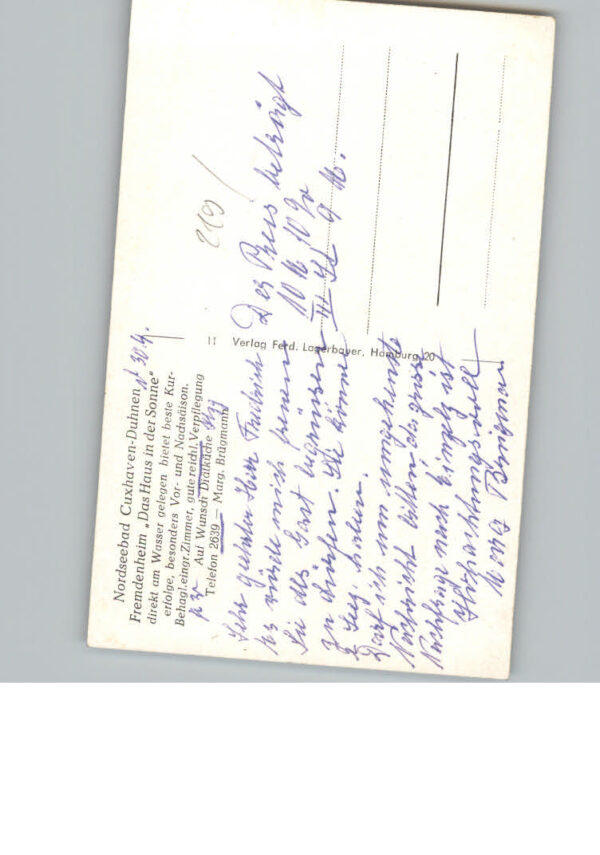 Nordseebad Cuxhaven-Duhnen, d. 30.4.
Fremdenheim „Das Haus in der Sonne"
direkt am Wasser gelegen bietet beste Kur-
erfolge, besonders Vor- und Nachsaison.
Behagl. eingr. Zimmer, gute reichl. Verpflegung
Auf Wunsch Diätküche
Telefon 2639 — Marg. Brügmann
Sehr geehrter Herr Friedrich
es würde mich freuen
Sie als Gast begrüßen
zu dürfen. Sie können
2 haben.
Darf ich um umgehende
Nachricht bitten da große
Nachfrage nach Einzelz. ist
Hochachtungsvoll
Marg Brügmann
Der Preis beträgt
10 M 10 Pr
9 M.
219
11 Verlag Ferd. Lagerbauer, Hamburg 20